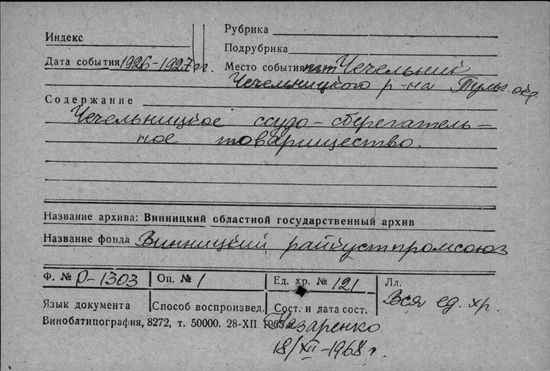 Индекс
Рубрика
Подрубрика
Дата события 1926-1927 гг.
Место события пгт Чечельник
Чечельницкого р-на обл
Содержание
Чечельницкое ссудо-сберегатель-
ное товарищество.
Название архива: Винницкий областной государственный архив
Название фонда Винницкий райкустпромсоюз
Ф. № Р-1303
Оп. № 1
Ед. хр. № 121
Лл.
Вся ед. хр.
Язык документа
Способ воспроизвед.
Сост. и дата сост.
Назаренко
18/XII-1968 г.
Виноблтипография, 8272, т. 50000. 28-XII